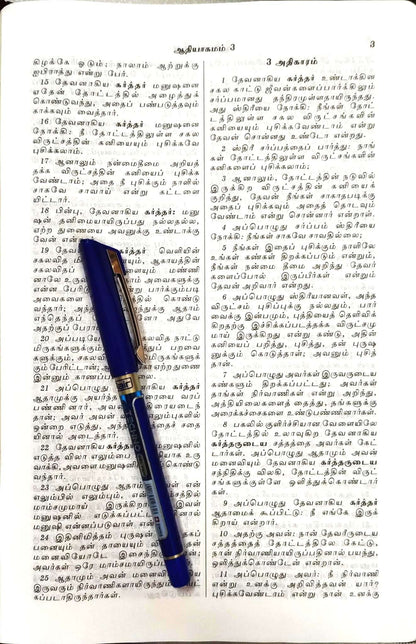 ஆதியாகமம் 3
3
கிழக்கே ஓடும்; நாலாம் ஆற்றுக்கு
ஐபிராத்து என்று பேர்.
15 தேவனாகிய கர்த்தர் மனுஷனை
ஏதேன் தோட்டத்தில் அழைத்துக்
கொண்டுவந்து, அதைப் பண்படுத்தவும்
காக்கவும் வைத்தார்.
16 தேவனாகிய கர்த்தர் மனுஷனை
நோக்கி: நீ தோட்டத்திலுள்ள சகல
விருட்சத்தின் கனியையும் புசிக்கவே
புசிக்கலாம்.
17 ஆனாலும் நன்மைதீமை அறியத்
தக்க விருட்சத்தின் கனியைப் புசிக்க
வேண்டாம்; அதை நீ புசிக்கும் நாளில்
சாகவே சாவாய் என்று கட்டளை
யிட்டார்.
18 பின்பு, தேவனாகிய கர்த்தர்: மனு
ஷன் தனிமையாயிருப்பது நல்லதல்ல,
ஏற்ற துணையை அவனுக்கு உண்டாக்கு
வேன்
19 கர்த்தர் வெளியின்
சகலவித ஆகாயத்தின்
சகலவித மண்ணி
னாலே அவைகளுக்கு
பார்க்கும்படி
அவைகளை கொண்டு
வந்தார்; ஆதாம்
எந்தெந்தப் அதுவே
அதற்குப்
20 அப்படியே நாட்டு
மிருகங்களுக்கும் பறவை
களுக்கும், மிருகங்களுக்
கும் பேரிட்டான்; ஏற்ற துணை
இன்னும்
21 அப்பொழுது கர்த்தர்
ஆதாமுக்கு அயர்ந்த வரப்
பண்ணினார், அவன்
தான்; அவர் அவன்
ஒன்றை எடுத்து, சதை
யினால் அடைத்தார்.
22 தேவனாகிய மனுஷனில்
எடுத்த விலா எலும்பை உரு
வாக்கி, அவளை மனுஷனிடத்தில்
வந்தார்.
23 அப்பொழுது ஆதாம்: என்
எலும்பில் எலும்பும், என்
மாம்சமுமாய் இருக்கிறாள்;
மனுஷனில் எடுக்கப்பட்டபடியினால்
மனுஷி என்னப்படுவாள்
24 இதினிமித்தம் புருஷன்
பனையும் தன் தாயையும்
மனைவியோடே இசைந்திருப்பான்;
அவர்கள் ஒரே மாம்சமாயிருப்பார்கள்.
25 ஆதாமும் அவன் மனைவியுமாகிய
இருவரும் நிர்வாணிகளாயிருந்தும், வெட்
கப்படாதிருந்தார்கள்.
3 அதிகாரம்
1 தேவனாகிய கர்த்தர் உண்டாக்கின
சகல காட்டு ஜீவன்களைப்பார்க்கிலும்
சர்ப்பமானது தந்திரமுள்ளதாயிருந்தது.
அது ஸ்திரீயை நோக்கி: நீங்கள் தோட்
டத்திலுள்ள சகல விருட்சங்களின்
கனியையும் புசிக்கவேண்டாம் என்று
தேவன் சொன்னது உண்டோ என்றது.
2 ஸ்திரீ சர்ப்பத்தைப் பார்த்து: நாங்
கள் தோட்டத்திலுள்ள விருட்சங்களின்
கனிகளைப் புசிக்கலாம்;
3 ஆனாலும், தோட்டத்தின் நடுவில்
இருக்கிற விருட்சத்தின் கனியைக்
குறித்து, தேவன்: நீங்கள் சாகாதபடிக்கு
அதைப் புசிக்கவும் அதைத் தொடவும்
வேண்டாம் என்று சொன்னார் என்றாள்.
4 அப்பொழுது சர்ப்பம் ஸ்திரீயை
நோக்கி: நீங்கள் சாகவே சாவதில்லை;
5 நீங்கள் இதைப் புசிக்கும் நாளிலே
உங்கள் கண்கள் திறக்கப்படும் என்றும்,
நீங்கள் நன்மை தீமை அறிந்து தேவர்
களைப்போல் இருப்பீர்கள் என்றும்
தேவன் அறிவார் என்றது.
6 அப்பொழுது ஸ்திரீயானவள், அந்த
விருட்சம் புசிப்புக்கு நல்லதும், பார்
வைக்கு இன்பமும், புத்தியைத் தெளிவிக்
கிறதற்கு இச்சிக்கப்படத்தக்க விருட்சமு
மாய் இருக்கிறது என்று கண்டு, அதின்
கனியைப் பறித்து, புசித்து, தன் புருஷ
னுக்கும் கொடுத்தாள்; அவனும் புசித்
தான்.
7 அப்பொழுது அவர்கள் இருவருடைய
கண்களும் திறக்கப்பட்டது; அவர்கள்
தாங்கள் நிர்வாணிகள் என்று அறிந்து,
அத்தியிலைகளைத் தைத்து, தங்களுக்கு
அரைக்கச்சைகளை உண்டுபண்ணினார்கள்.
8 பகலில் குளிர்ச்சியான வேளையிலே
தோட்டத்தில் உலாவுகிற தேவனாகிய
கர்த்தருடைய சத்தத்தை அவர்கள் கேட்
டார்கள். அப்பொழுது ஆதாமும் அவன்
மனைவியும் தேவனாகிய கர்த்தருடைய
சந்நிதிக்கு விலகி, தோட்டத்தின் விருட்
சங்களுக்குள்ளே ஒளித்துக்கொண்டார்
கள்.
9 அப்பொழுது தேவனாகிய கர்த்தர்
ஆதாமைக் கூப்பிட்டு: நீ எங்கே இருக்
கிறாய் என்றார்.
10 அதற்கு அவன்: நான் தேவரீருடைய
சத்தத்தைத் தோட்டத்திலே கேட்டு,
நான் நிர்வாணியாயிருப்பதினால் பயந்து,
ஒளித்துக்கொண்டேன் என்றான்.
11 அப்பொழுது அவர்: நீ நிர்வாணி
என்று உனக்கு அறிவித்தவன் யார்?
புசிக்கவேண்டாம் என்று நான் உனக்கு